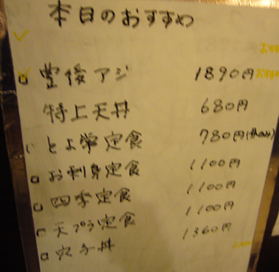 本日のおすすめ
豊後アジ 1890円
特上天丼 680円
とよ常定食 780円
お刺身定食 1100円
四季定食 1100円
天プラ定食 1100円
穴子丼 1360円